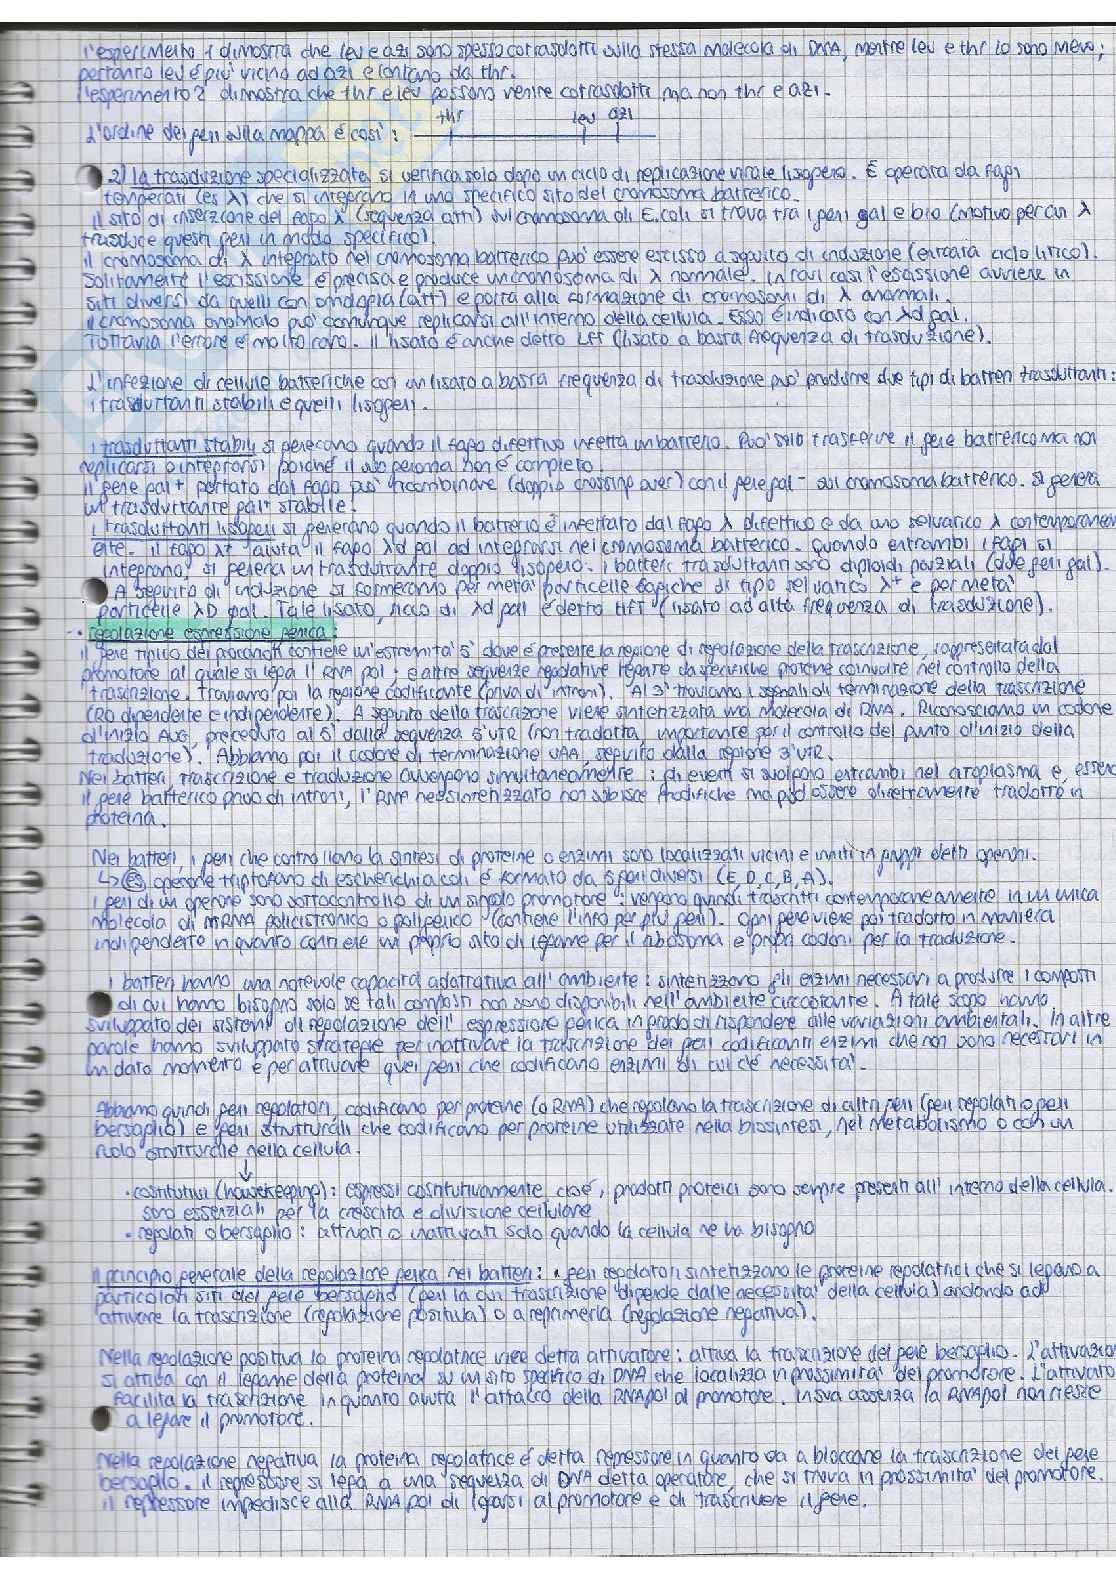 l'esperimento 1 dimostra che leu e azi sono spesso cotrasdotti sulla stessa molecola di DNA, mentre leu e thr lo sono meno;
pertanto leu é piu' vicino ad azi e lontano da thr.
l'esperimento 2 dimostra che thr e leu possono venire cotrasdotti ma non thr e azi.
thr leu azi
L'ordine dei geni sulla mappa é cosi':
2) la trasduzione specializzata si verifica solo dopo un ciclo di replicazione virale lisogeno. É operata da fagi
temperati (es λ) che si integrano in uno specifico sito del cromosoma batterico.
il sito di inserzione del fago λ (sequenza att) sul cromosoma di E.coli si trova tra i geni gal e bio (motivo per cui λ
trasduce questi geni in modo specifico).
il cromosoma di λ integrato nel cromosoma batterico puo' essere escisso a seguito di induzione (entrata ciclo litico).
Solitamente l'escissione é precisa e produce un cromosoma di λ normale. In rari casi l'escissione avviene in
siti diversi da quelli con omologia (att) e porta alla formazione di cromosomi di λ anormali.
il cromosoma anomalo puo' comunque replicarsi all'interno della cellula. Esso é indicato con λd gal.
Tuttavia l'errore é molto raro. Il lisato é anche detto LFT (lisato a bassa frequenza di trasduzione).
L'infezione di cellule batteriche con un lisato a bassa frequenza di trasduzione puo' produrre due tipi di batteri trasduttanti:
i trasduttanti stabili e quelli lisogeni.
i trasduttanti stabili si generano quando il fago difettivo infetta un batterio. Puo' solo trasferire il gene batterico ma non
replicarsi o integrarsi poiché il suo genoma non é completo.
il gene gal+ portato dal fago puo' ricombinare (doppio crossing over) con il gene gal- sul cromosoma batterico. Si genera
un trasduttante gal+ stabile.
i trasduttanti lisogeni si generano quando il batterio é infettato dal fago λ difettivo e da uno selvatico λ contemporaneam
ente. il fago λ+ "aiuta" il fago λd gal ad integrarsi nel cromosoma batterico. Quando entrambi i fagi si
integrano, si genera un trasduttante doppio lisogeno. i batteri trasduttanti sono diploidi parziali (due geni gal).
A seguito di induzione si formeranno per meta' particelle fagiche di tipo selvatico λ+ e per meta'
particelle λD gal. Tale lisato, ricco di λd gal é detto HFT (lisato ad alta frequenza di trasduzione).
• regolazione espressione genica:
il gene tipico dei procarioti contiene un'estremita' 5' dove é presente la regione di regolazione della trascrizione, rappresentata dal
promotore al quale si lega l'RNA pol; e altre sequenze regolative legate da specifiche proteine coinvolte nel controllo della
trascrizione. Troviamo poi la regione codificante (priva di introni). Al 3' troviamo i segnali di terminazione della trascrizione
(RO dipendente e indipendente). A seguito della trascrizione viene sintetizzata una molecola di RNA. Riconosciamo un codone
d'inizio AUG, preceduto al 5' dalla sequenza 5'UTR (non tradotta, importante per il controllo del punto d'inizio della
traduzione). Abbiamo poi il codone di terminazione UAA, seguito dalla regione 3'UTR.
Nei batteri, trascrizione e traduzione avvengono simultaneamente: gli eventi si svolgono entrambi nel citoplasma e, essendo
il gene batterico privo di introni, l'RNA neosintetizzato non subisce modifiche ma puó essere direttamente tradotto in
proteina.
Nei batteri, i geni che controllano la sintesi di proteine o enzimi sono localizzati vicini e uniti in gruppi detti operoni.
↳ ES operone triptofano di escherichia coli é formato da 5 geni diversi (E, D, C, B, A).
i geni di un operone sono sotto controllo di un singolo promotore: vengono quindi trascritti contemporaneamente in un'unica
molecola di mRNA policistronico o poligenico (contiene l'info per piu' geni). Ogni gene viene poi tradotto in maniera
indipendente in quanto contiene un proprio sito di legame per il ribosoma e propri codoni per la traduzione.
i batteri hanno una notevole capacitá adattativa all'ambiente: sintetizzano gli enzimi necessari a produrre i composti
di cui hanno bisogno solo se tali composti non sono disponibili nell'ambiente circostante. A tale scopo hanno
sviluppato dei sistemi di regolazione dell'espressione genica in grado di rispondere alle variazioni ambientali. In altre
parole hanno sviluppato strategie per inattivare la trascrizione dei geni codificanti enzimi che non sono necessari in
un dato momento e per attivare quei geni che codificano enzimi di cui c'é necessita'.
Abbiamo quindi geni regolatori, codificano per proteine (o RNA) che regolano la trascrizione di altri geni (geni regolati o geni
bersaglio) e geni strutturali che codificano per proteine utilizzate nella biosintesi, nel metabolismo o con un
ruolo strutturale nella cellula.
↓
• costitutivi (housekeeping): espressi costitutivamente, cioé, prodotti proteici sono sempre presenti all'interno della cellula.
sono essenziali per la crescita e divisione cellulare
• regolati o bersaglio: attivati o inattivati solo quando la cellula ne ha bisogno
Il principio generale della regolazione genica nei batteri: i geni regolatori sintetizzano le proteine regolatrici che si legano a
particolari siti del gene bersaglio (geni la cui trascrizione dipende dalle necessita' della cellula) andando ad
attivare la trascrizione (regolazione positiva) o a reprimerla (regolazione negativa).
Nella regolazione positiva la proteina regolatrice viene detta attivatore: attiva la trascrizione del gene bersaglio. L'attivazion
si attiva con il legame della proteina su un sito specifico di DNA che localizza in prossimita' del promotore. L'attivator
facilita la trascrizione in quanto aiuta l'attacco della RNApol al promotore. In sua assenza la RNApol non riesce
a legare il promotore.
Nella regolazione negativa la proteina regolatrice é detta repressore in quanto va a bloccare la trascrizione del gene
bersaglio. il repressore si lega a una sequenza di DNA detta operatore, che si trova in prossimita' del promotore.
il repressore impedisce alla RNA pol di legarsi al promotore e di trascrivere il gene.